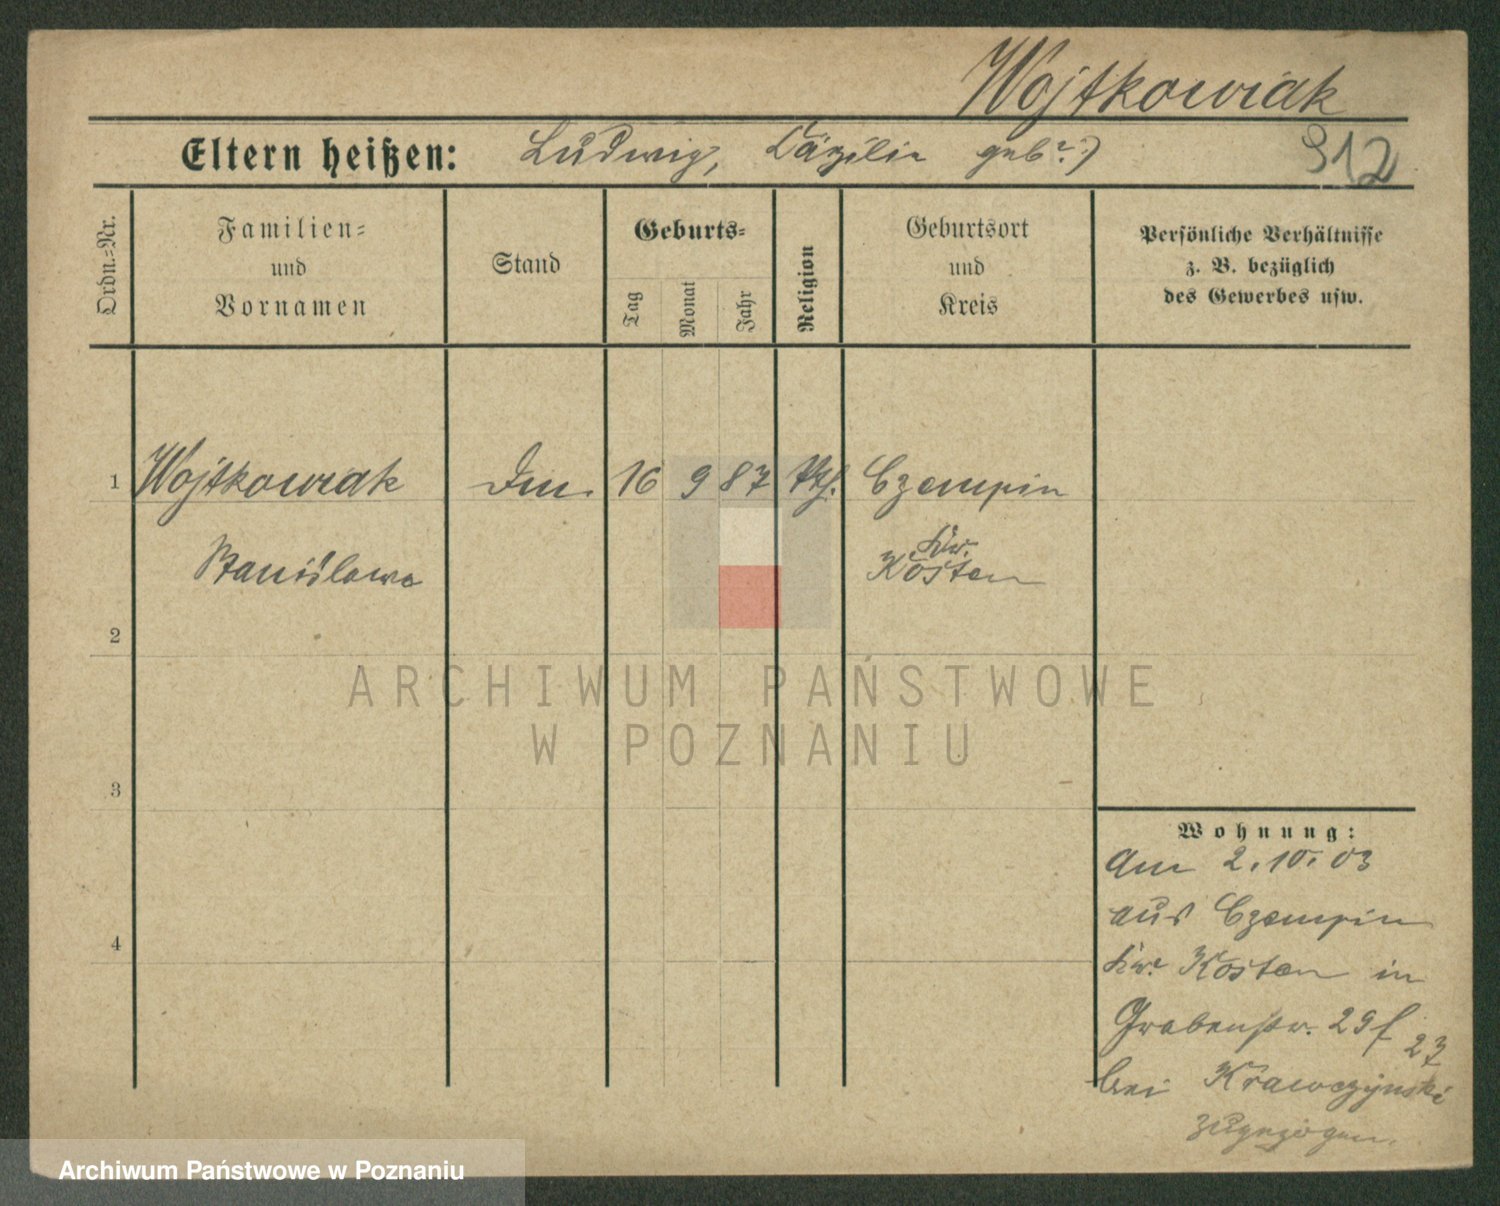 Wojtkowiak
Eltern heißen: Ludwig, Cäzilie geb. ?)
312
Ordn.-Nr.
Familien-
und
Vornamen
Stand
Geburts-
Tag
Monat
Jahr
Religion
Geburtsort
und
Kreis
Persönliche Verhältnisse
z. B. bezüglich
des Gewerbes usw.
1 Wojtkowiak 16 9 87 Czempin
Stanislawa Kr. Kosten
2
3
4
ARCHIWUM PAŃSTWOWE
W POZNANIU
Wohnung:
Am 2.10.03
aus Czempin
Kr. Kosten in
Grabenstr. 29
27
bei Krawczynski
zugezogen.
Archiwum Państwowe w Poznaniu